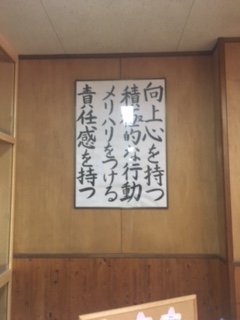 向上心を持つ
積極的な行動
メリハリをつける
責任感を持つ